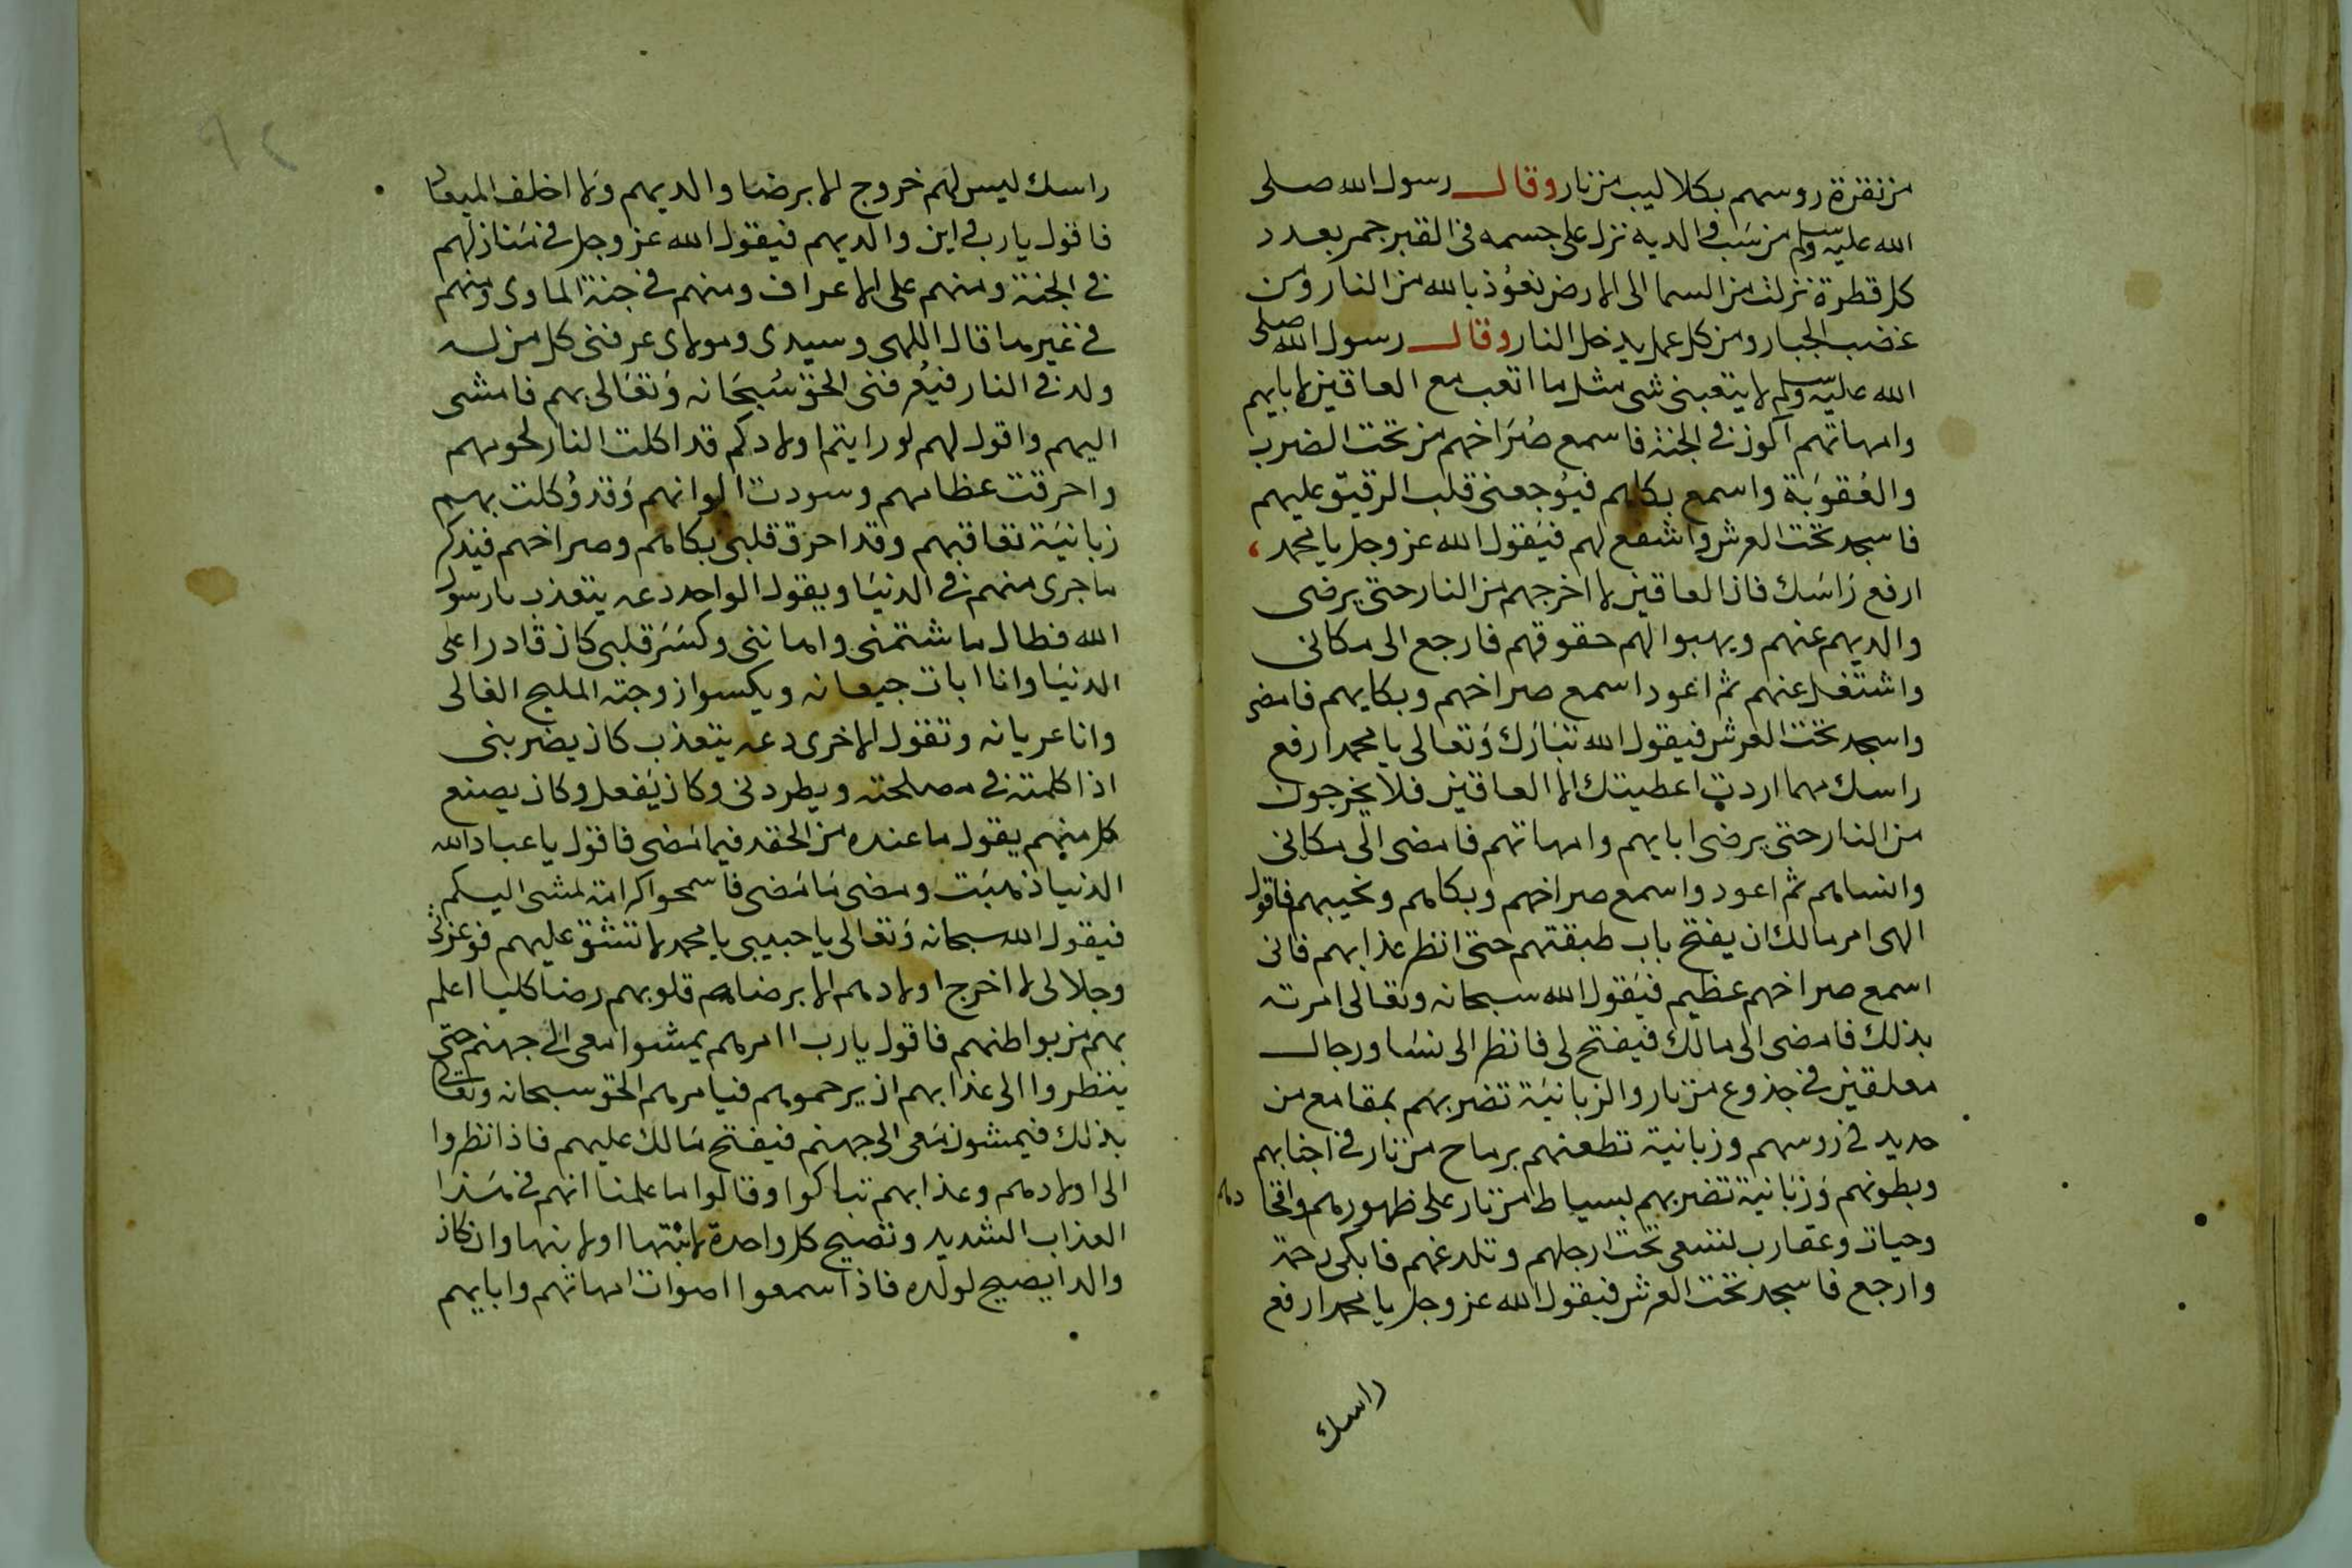 من نقرة روسهم بكلاليب من نار وقال رسول الله صلى
الله عليه وسلم من سب والديه نزل على جسمه فى القبر جمر بعدد
كل قطرة نزلت من السما الى الارض نعوذ بالله من النار ومن
غضب الجبار ومن كل عمل يدخل النار وقال رسول الله صلى
الله عليه وسلم لا يتعبنى شى مثل ما اتعب مع العاقين لابايهم
وامهاتهم اكون فى الجنة فاسمع صراخهم من تحت الضرب
والعقوبة واسمع بكاهم فيوجعنى قلب الرقيق عليهم
فاسجد تحت العرش واشفع لهم فيقول الله عز وجل يا محمد
ارفع راسك فان العاقين لا اخرجهم من النار حتى يرضى
والديهم عنهم ويهبوا لهم حقوقهم فارجع الى مكانى
واشتغل عنهم ثم اعود اسمع صراخهم وبكايهم فامضى
واسجد تحت العرش فيقول الله تبارك وتعالى يا محمد ارفع
راسك مهما اردت اعطيتك الا العاقين فلا يخرجون
من النار حتى يرضى ابايهم وامهاتهم فامضى الى مكانى
وانساهم ثم اعود واسمع صراخهم وبكاهم ونحيبهم فاقول
الهى امر مالك ان يفتح باب طبقتهم حتى انظر عذابهم فانى
اسمع صراخهم عظيم فيقول الله سبحانه وتعالى امرته
بذلك فامضى الى مالك فيفتح لى فانظر الى نسا ورجال
معلقين فى جذوع من نار والزبانية تضربهم بمقامع من
حديد فى روسهم وزبانية تطعنهم برماح من نار فى اجنابهم
وبطونهم وزبانية تضربهم بسياط من نار على ظهورهم وافخادهم
وحيات وعقارب لتسعى تحت ارجلهم وتلدغهم فابكى رحمة
وارجع فاسجد تحت العرش فيقول الله عز وجل يا محمد ارفع
راسك
راسك ليس لهم خروج الا برضا والديهم ولا اخلف الميعاد
فاقول يا رب فى اين والديهم فيقول الله عز وجل فى منازلهم
فى الجنة ومنهم على الاعراف ومنهم فى جنة الماوى ومنهم
فى غير هدا قال اللهى وسيدى ومولاى عرفنى كل من له
ولد فى النار فيعرفنى الحق سبحانه وتعالى بهم فامشى
اليهم واقول لهم لو رايتم اولادكم قد اكلت النار لحومهم
واحرقت عظامهم وسودت الوانهم وقد وكلت بهم
زبانية تعاقبهم وقد احرق قلبى بكاهم وصراخهم فيذكر
ما جرى منهم فى الدنيا ويقول الواحد دعه يتعذب يا رسول
الله فطال ما شتمنى واهاننى وكسر قلبى كان قادرا على
الدنيا وانا ابات جيعانه ويكسوا زوجته المليح الغالى
وانا عريانه وتقول الاخرى دعه يتعذب كان يضربنى
اذا كلمته فى مصلحته ويطردنى وكان يفعل وكان يصنع
كل منهم يقول ما عنده من الحقد فيما مضى فاقول يا عباد الله
الدنيا ذهبت ومضى ما مضى فاسمحوا كرامة لمشى اليكم
فيقول الله سبحانه وتعالى يا حبيبى يا محمد لا تشق عليهم فوعزتى
وجلالى لا اخرج اولادهم الا برضاهم قلوبهم رضا كليا اعلم
بهم من بواطنهم فاقول يا رب اامرهم يمشوا معى الى جهنم حتى
ينظروا الى عذابهم ان يرحموهم فيامرهم الحق سبحانه وتعالى
بذلك فيمشون معى الى جهنم فيفتح مالك عليهم فاذا نظروا
الى اولادهم وعذابهم تباكوا وقالوا ما علمنا انهم فى هذا
العذاب الشديد وتصيح كل واحدة لابنتها اولابنها وان كان
والدا يصيح لولده فاذا سمعوا اصوات امهاتهم وابايهم